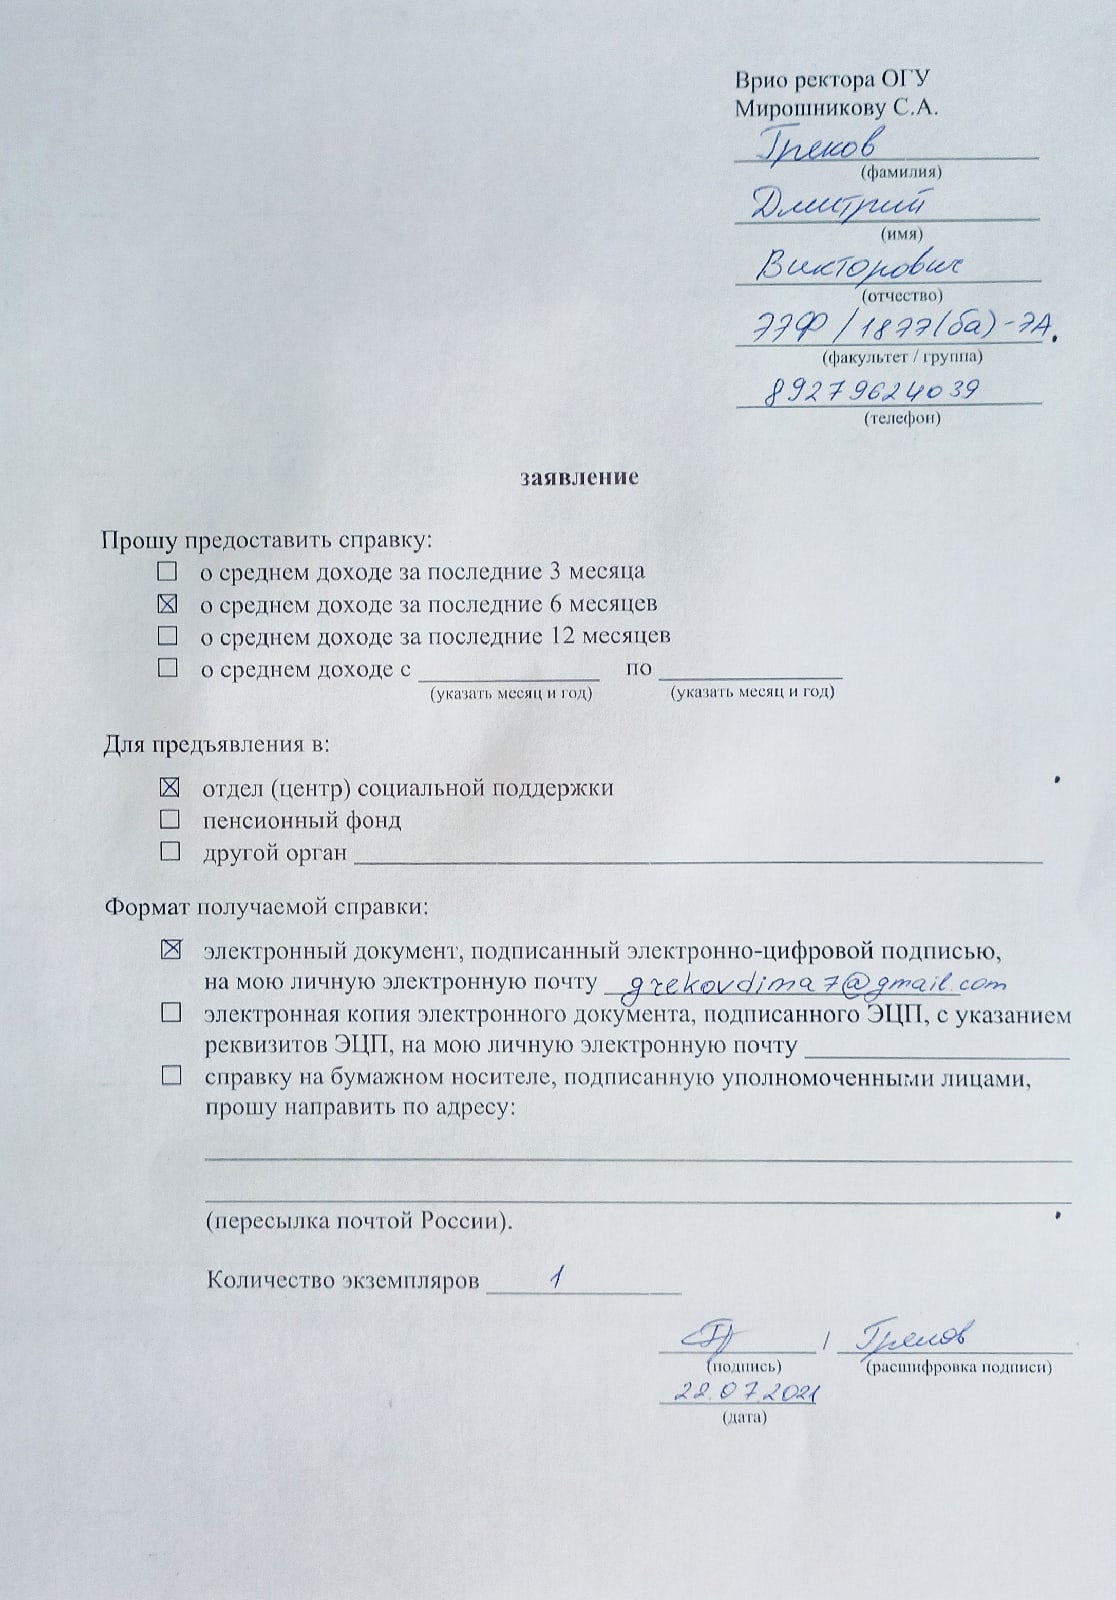 Врио ректора ОГУ
Мирошникову С.А.
Греков
(фамилия)
Дмитрий
(имя)
Викторович
(отчество)
ЭЭФ / 18ЭЭ(ба)-ЭА
(факультет / группа)
89279624039
(телефон)
заявление
Прошу предоставить справку:
☐ о среднем доходе за последние 3 месяца
☒ о среднем доходе за последние 6 месяцев
☐ о среднем доходе за последние 12 месяцев
☐ о среднем доходе с ____________ по ____________
(указать месяц и год) (указать месяц и год)
Для предъявления в:
☒ отдел (центр) социальной поддержки
☐ пенсионный фонд
☐ другой орган ____________
Формат получаемой справки:
☒ электронный документ, подписанный электронно-цифровой подписью,
на мою личную электронную почту grekovdima7@gmail.com
☐ электронная копия электронного документа, подписанного ЭЦП, с указанием
реквизитов ЭЦП, на мою личную электронную почту ____________
☐ справку на бумажном носителе, подписанную уполномоченными лицами,
прошу направить по адресу:
(пересылка почтой России).
Количество экземпляров 1
Гр / Греков
(подпись) (расшифровка подписи)
22.07.2021
(дата)